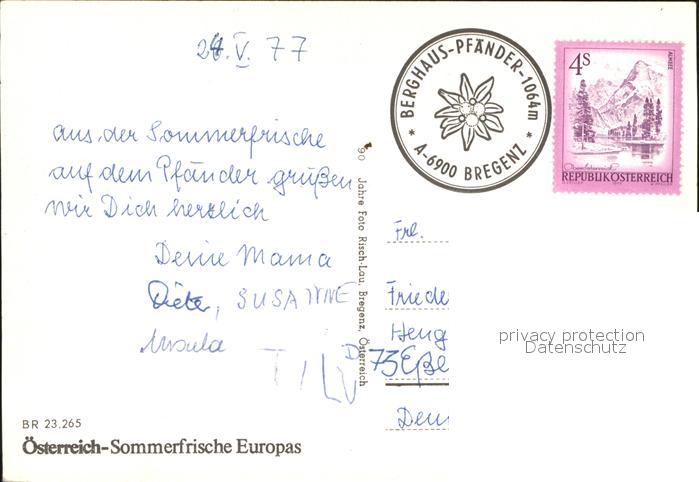 24.V.77
aus der Sommerfrische
auf dem Pfänder grüßen
wir Dich herzlich
Deine Mama
Dieter, SUSANNE
Ursula
TILO
BR 23.265
Österreich-Sommerfrische Europas
90 Jahre Foto Risch-Lau, Bregenz, Österreich
* BERGHAUS-PFÄNDER-1064m *
A-6900 BREGENZ
4S
ALMSEE
REPUBLIK ÖSTERREICH
Frl.
Friede
Heng
D 73 Eßl
Deu
privacy protection
Datenschutz